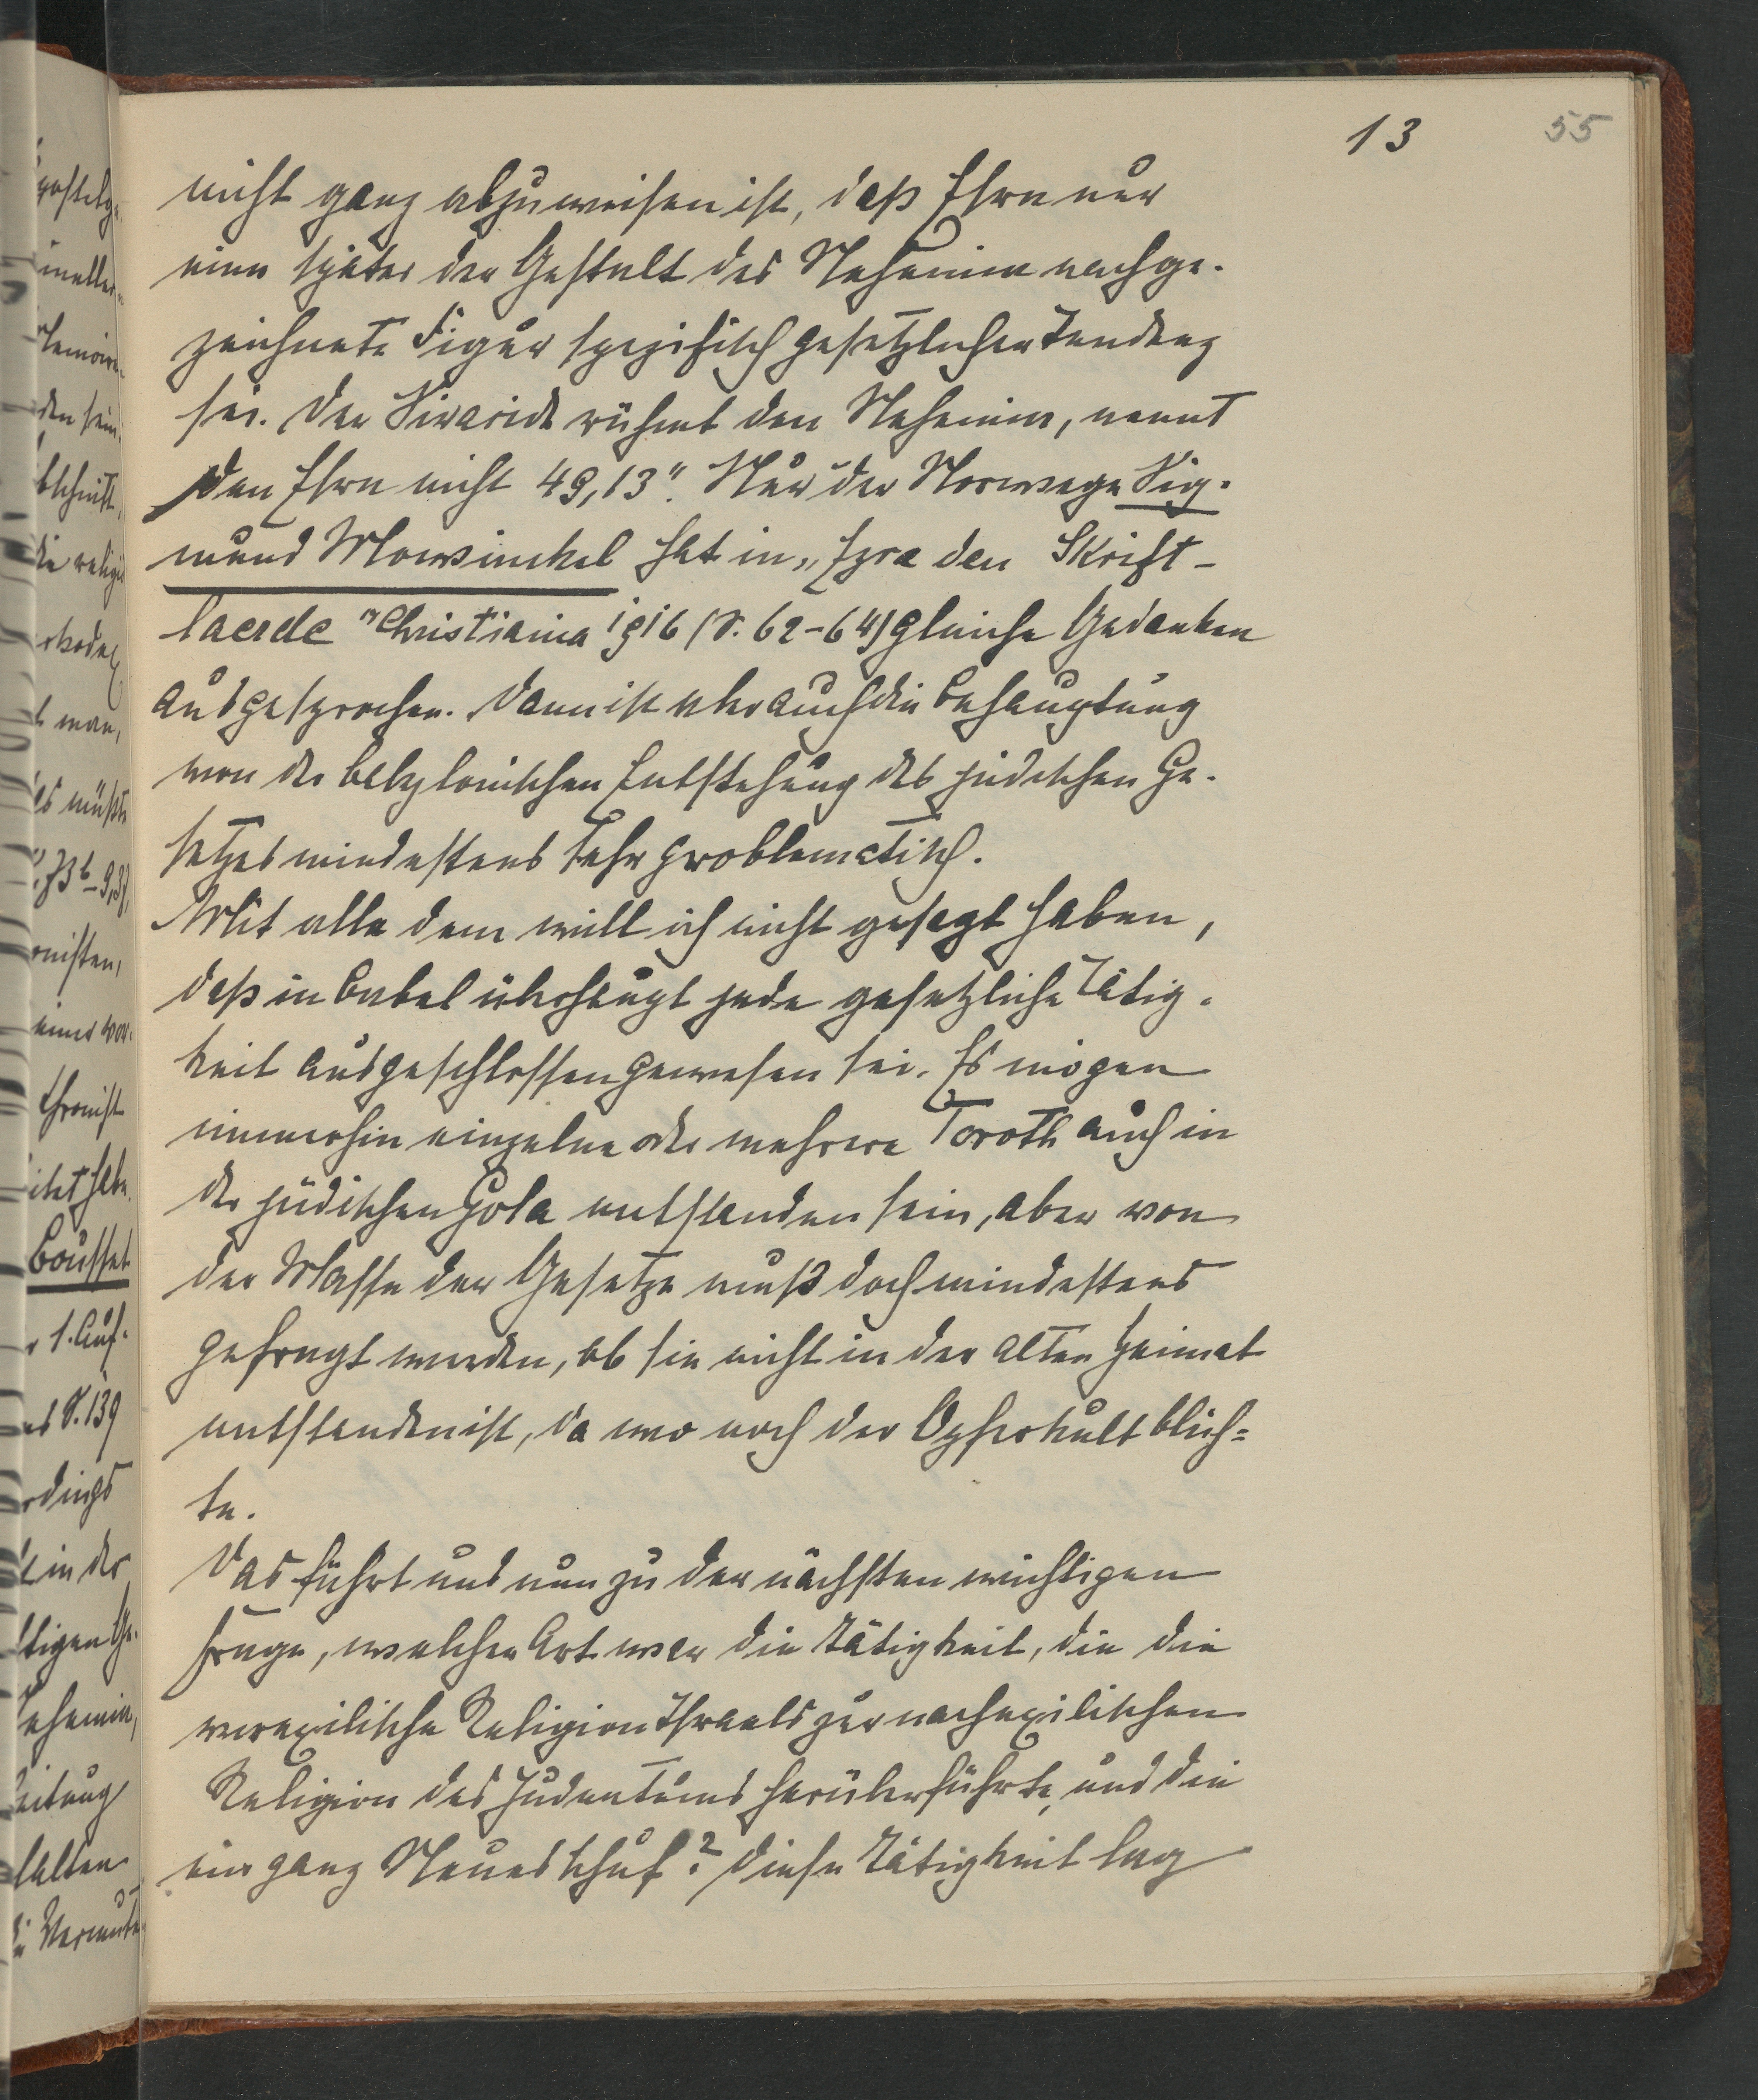 13 55
nicht ganz abzuweisen ist, daß Esra nur
eine später der Gestalt des Nehemia nachge-
zeichnete Figur spezifisch gesetzlicher Tendenz
sei. Der Siraside rühmt den Nehemia, nennt
den Esra nicht 49,13". Nur der Norwege Sig-
mund Mowsinckel hat in "Esra den Skrift-
laerde" Christiania 1916 (S. 62-64) gleiche Gedanken
ausgesprochen. Dann ist aber auch die Behauptung
von der babylonischen Entstehung des jüdischen Ge-
setzes mindestens sehr problematisch.
Mit alle dem will ich nicht gesagt haben,
daß in Babel überhaupt jede gesetzliche Tätig-
keit ausgeschlossen gewesen sei. Es mögen
immerhin einzelne oder mehrere Toroth auch in
der jüdischen Gola entstanden sein, aber von
der Masse der Gesetze muß doch mindestens
gefragt werden, ob sie nicht in der alten Heimat
entstanden ist, da wo noch der Opferkult blüh=
te.
Das führt uns nun zu der nächsten wichtigen
Frage, welcher Art war die Tätigkeit, die die
vorexilische Religion Israels zur nachexilischen
Religion des Judentums herüberführte, und die
ein ganz Neues schuf? Diese Tätigkeit lag